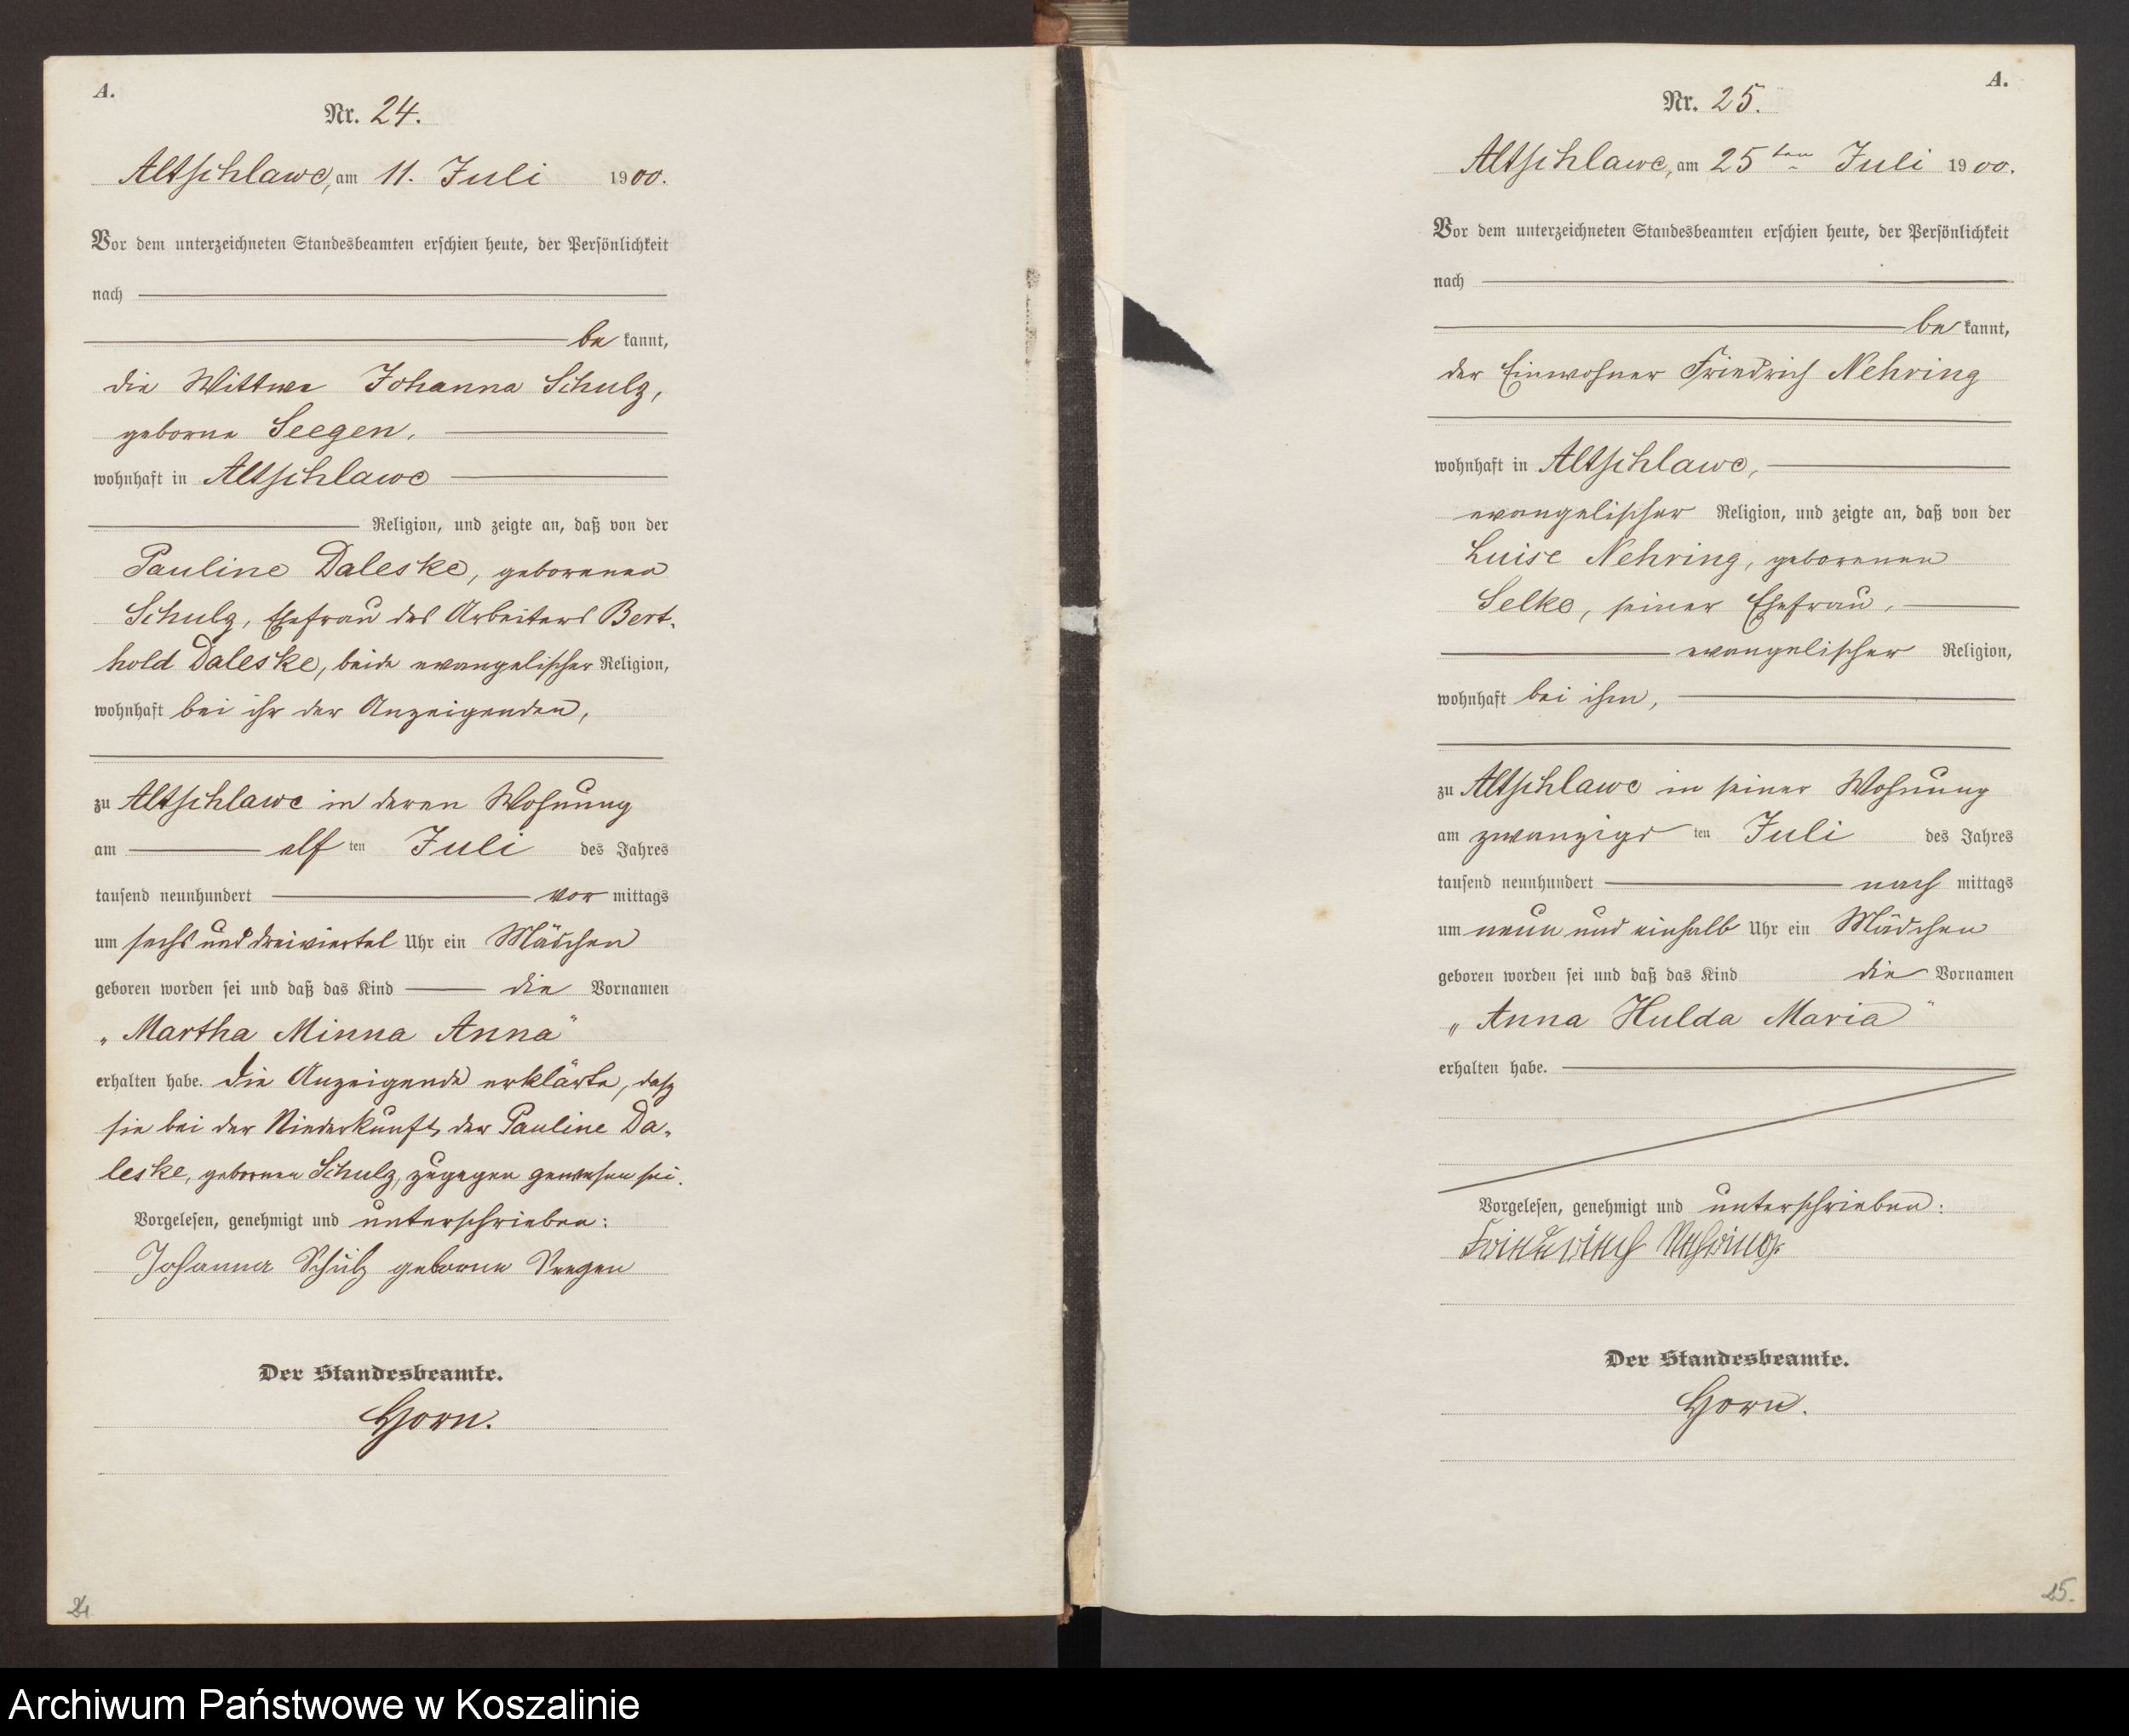 A.
Nr. 24.
Altschlawe, am 11. Juli 1900.
Vor dem unterzeichneten Standesbeamten erschien heute, der Persönlichkeit
nach
be kannt,
die Wittwe Johanna Schulz,
geborne Seegen,
wohnhaft in Altschlawe
Religion, und zeigte an, daß von der
Pauline Daleske, geborenen
Schulz, Ehefrau des Arbeiters Bert-
hold Daleske, beide evangelischer Religion,
wohnhaft bei ihr der Anzeigenden,
zu Altschlawe in deren Wohnung
am elf ten Juli des Jahres
tausend neunhundert vor mittags
um sechs und dreiviertel Uhr ein Mädchen
geboren worden sei und daß das Kind die Vornamen
„Martha Minna Anna“
erhalten habe. Die Anzeigende erklärte, dasz
sie bei der Niederkunft der Pauline Da-
leske, gebornen Schulz, zugegen gewesen sei.
Vorgelesen, genehmigt und unterschrieben:
Johanna Schulz geborne Seegen
Der Standesbeamte.
Horn.
24
A.
Nr. 25.
Altschlawe, am 25ten Juli 1900.
Vor dem unterzeichneten Standesbeamten erschien heute, der Persönlichkeit
nach
be kannt,
der Einwohner Friedrich Nehring
wohnhaft in Altschlawe,
evangelischer Religion, und zeigte an, daß von der
Luise Nehring, geborenen
Selke, seiner Ehefrau,
evangelischer Religion,
wohnhaft bei ihm,
zu Altschlawe in seiner Wohnung
am zwanzigs ten Juli des Jahres
tausend neunhundert nach mittags
um neun und einhalb Uhr ein Mädchen
geboren worden sei und daß das Kind die Vornamen
„Anna Hulda Maria“
erhalten habe.
Vorgelesen, genehmigt und unterschrieben:
Friederich Nehring
Der Standesbeamte.
Horn.
25.
Archiwum Państwowe w Koszalinie